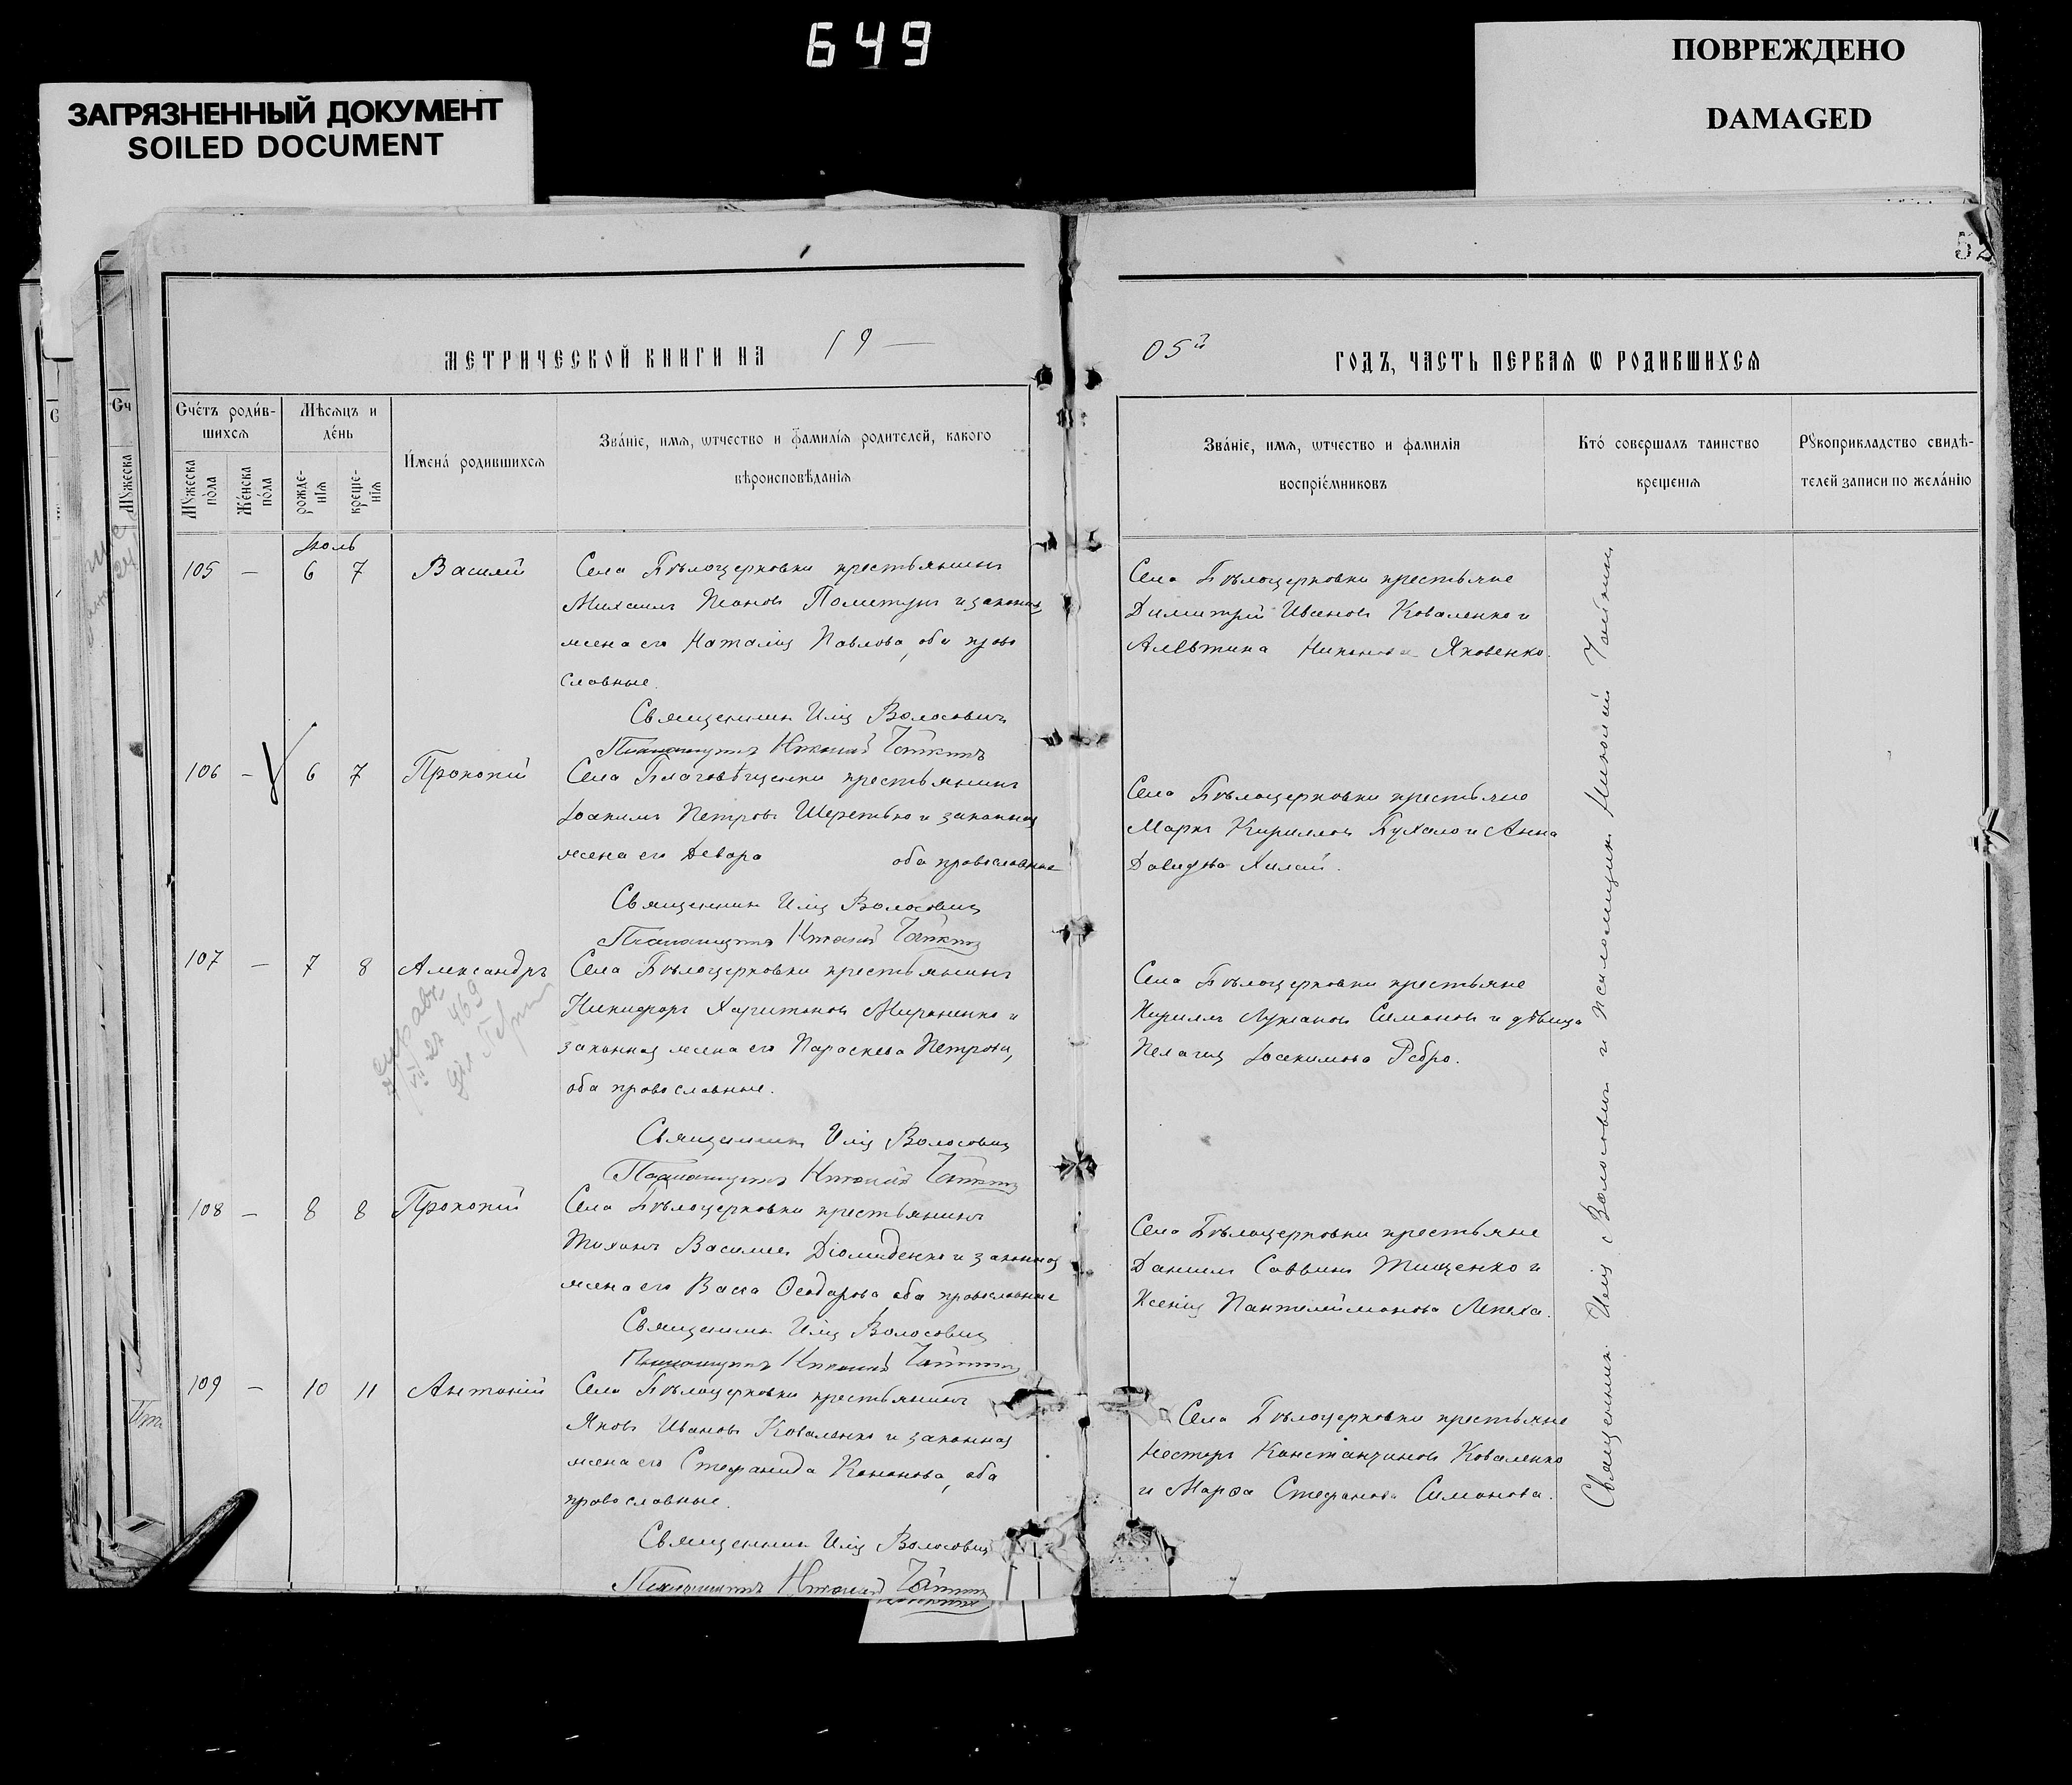 649
ЗАГРЯЗНЕННЫЙ ДОКУМЕНТ
SOILED DOCUMENT
ПОВРЕЖДЕНО
DAMAGED
52
МЕТРИЧЕСКОЙ КНИГИ НА 19—
05й ГОДЪ, ЧАСТЬ ПЕРВАЯ Ѡ РОДИВШИХСЯ
Счётъ роди́вшихся
Мѣсяцъ и де́нь
Мꙋжеска по́ла
Же́нска по́ла
рожде-нія
креще-нія
И҆мена́ родившихся
Зва́ніе, имя, ѡтчество и фамилія родителей, какого
вѣроисповѣданія
Зва́ніе, имя, ѡтчество и фамилія
воспріе́мниковъ
Кто́ совершалъ таинство
крещенія
Рꙋкоприкладство свидѣ-
телей записи по жела́нію
Іюль
105 — 6 7 Василій
Села Бѣлоцерковки крестьянинъ
Михаилъ Іоановъ Полетунъ и законн.
жена его Наталія Павлова, оба право
славные.
Священникъ Илія Волосовичъ
Псаломщикъ Николай Чайкинъ
Села Бѣлоцерковки крестьяне
Димитрій Ивановъ Коваленко и
Алевтина Яковенко.
106 — 6 7 Прокопій
Села Благовѣщенки крестьянинъ
Іоакимъ Петровъ Шеретько и законная
жена его оба православные
Священникъ Илія Волосовичъ
Псаломщикъ Николай Чайкинъ
Села Бѣлоцерковки крестьяне
Маркъ Кирилловъ Бухало и Анна
Давидова Хилай.
107 — 7 8 Александръ
Села Бѣлоцерковки крестьянинъ
Никифоръ Харитоновъ Мироненко и
законная жена его Параскева Петрова,
оба православные.
Священникъ Илія Волосовичъ
Псаломщикъ Николай Чайкинъ
Села Бѣлоцерковки крестьяне
Кириллъ Лукіановъ Симоновъ и дѣвица
Пелагія Іоакимова Ребро.
108 — 8 8 Прокопій
Села Бѣлоцерковки крестьянинъ
Тихонъ Васильевъ Діомиденко и законная
жена его Васса Ѳеодорова оба православные
Священникъ Илія Волосовичъ
Псаломщикъ Николай Чайкинъ
Села Бѣлоцерковки крестьяне
Даніилъ Саввинъ Тищенко и
Ксенія Пантелеймонова Лепеха.
109 — 10 11 Антоній
Села Бѣлоцерковки крестьянинъ
Яковъ Ивановъ Коваленко и законная
жена его Стефанида Кононова, оба
православные.
Священникъ Илія Волосовичъ
Псаломщикъ Николай Чайкинъ
Села Бѣлоцерковки крестьяне
Несторъ Константиновъ Коваленко
и Марѳа Стефанова Симонова.
Священникъ Илія Волосовичъ и Псаломщикъ Николай Чайкинъ